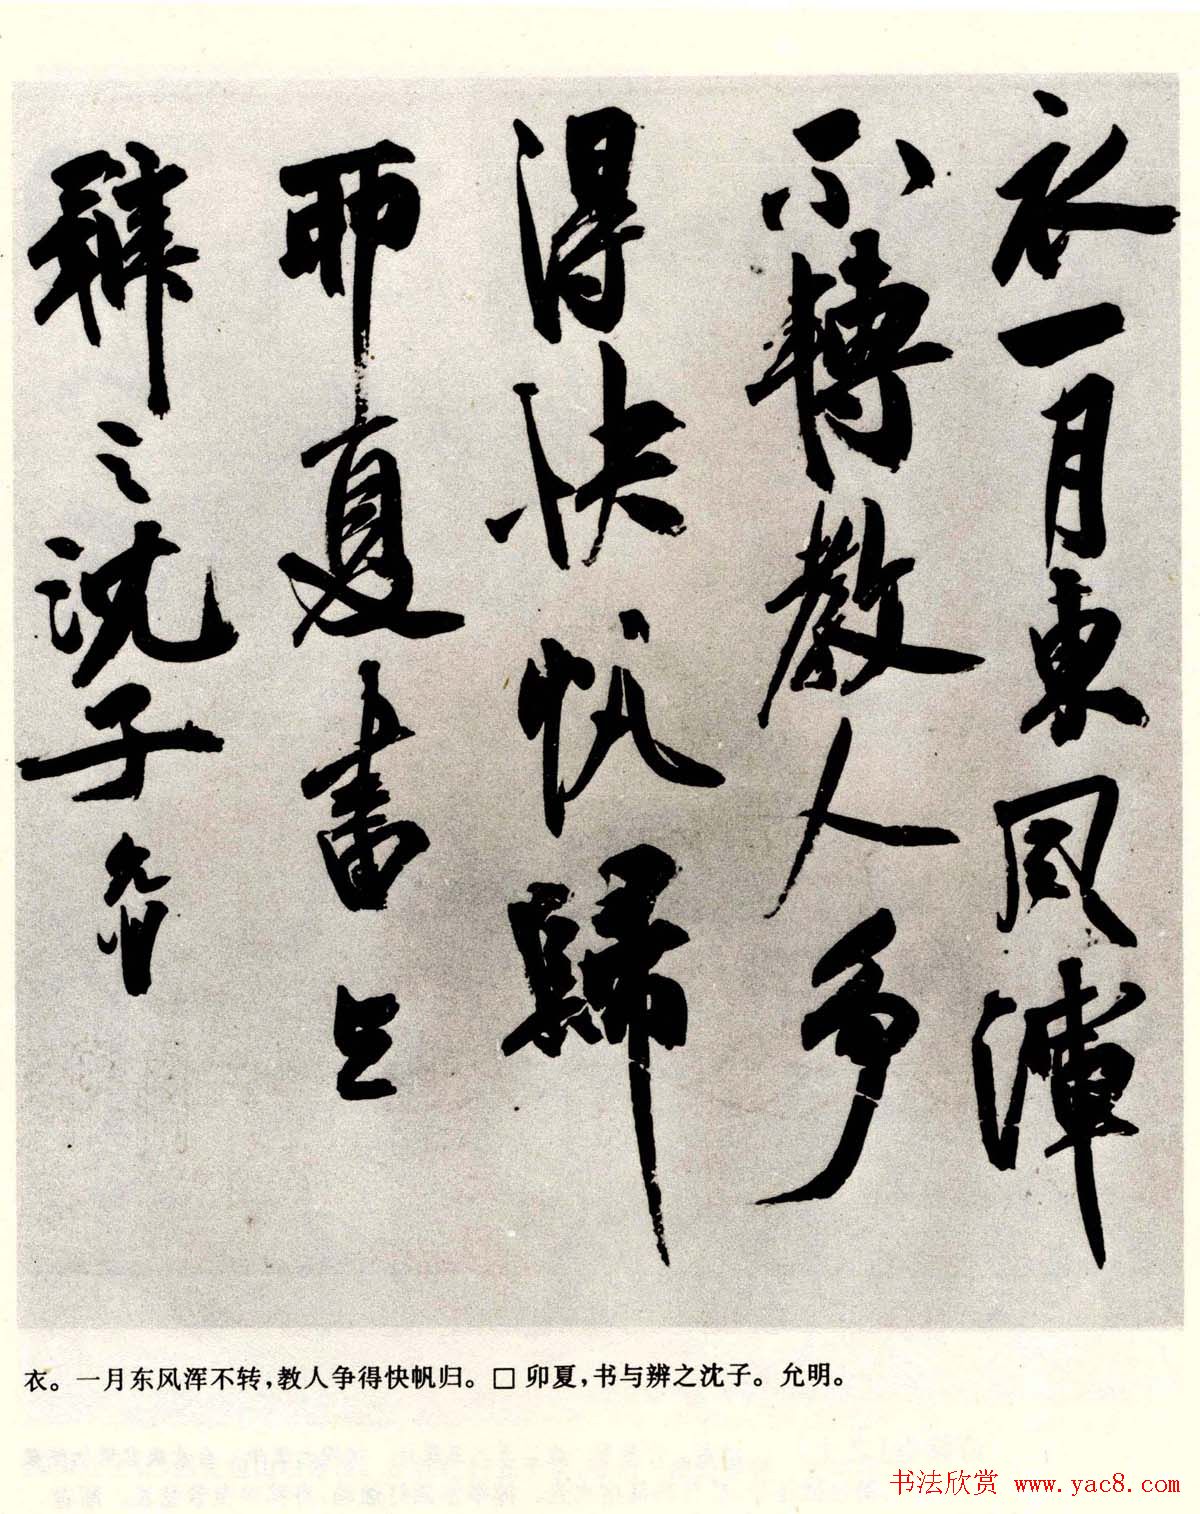 衣一月東風渾
不轉教人爭
得快帆歸
卯夏書与
辨之沈子允明
衣。一月东风浑不转，教人争得快帆归。□卯夏，书与辨之沈子。允明。
书法欣赏 www.yac8.com